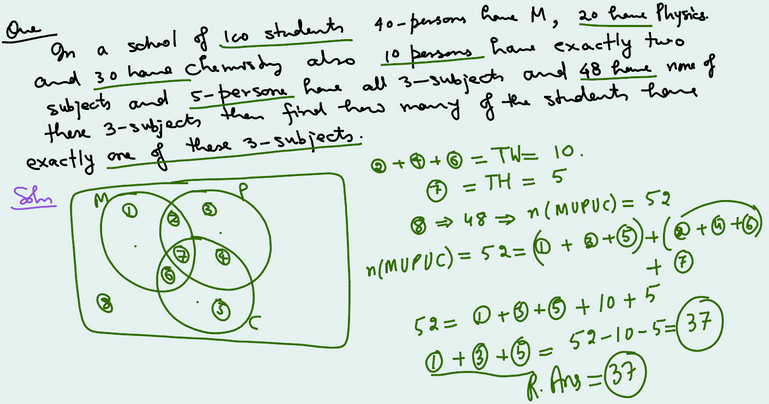 Que
In a school of 100 students 40-persons have M, 20 have Physics.
and 30 have Chemistry also 10 persons have exactly two
subjects and 5-persons have all 3-subjects and 48 have none of
these 3-subjects then find how many of the students have
exactly one of these 3-subjects.
Soln
M P
① ② ③
⑦ ④
⑥
⑧ ⑤
C
② + ④ + ⑥ = TW = 10.
⑦ = TH = 5
⑧ ⇒ 48 ⇒ n(MUPUC) = 52
n(MUPUC) = 52 = (① + ③ + ⑤) + (② + ④ + ⑥)
+ ⑦
52 = ① + ③ + ⑤ + 10 + 5
① + ③ + ⑤ = 52 - 10 - 5 = 37
R. Ans = 37